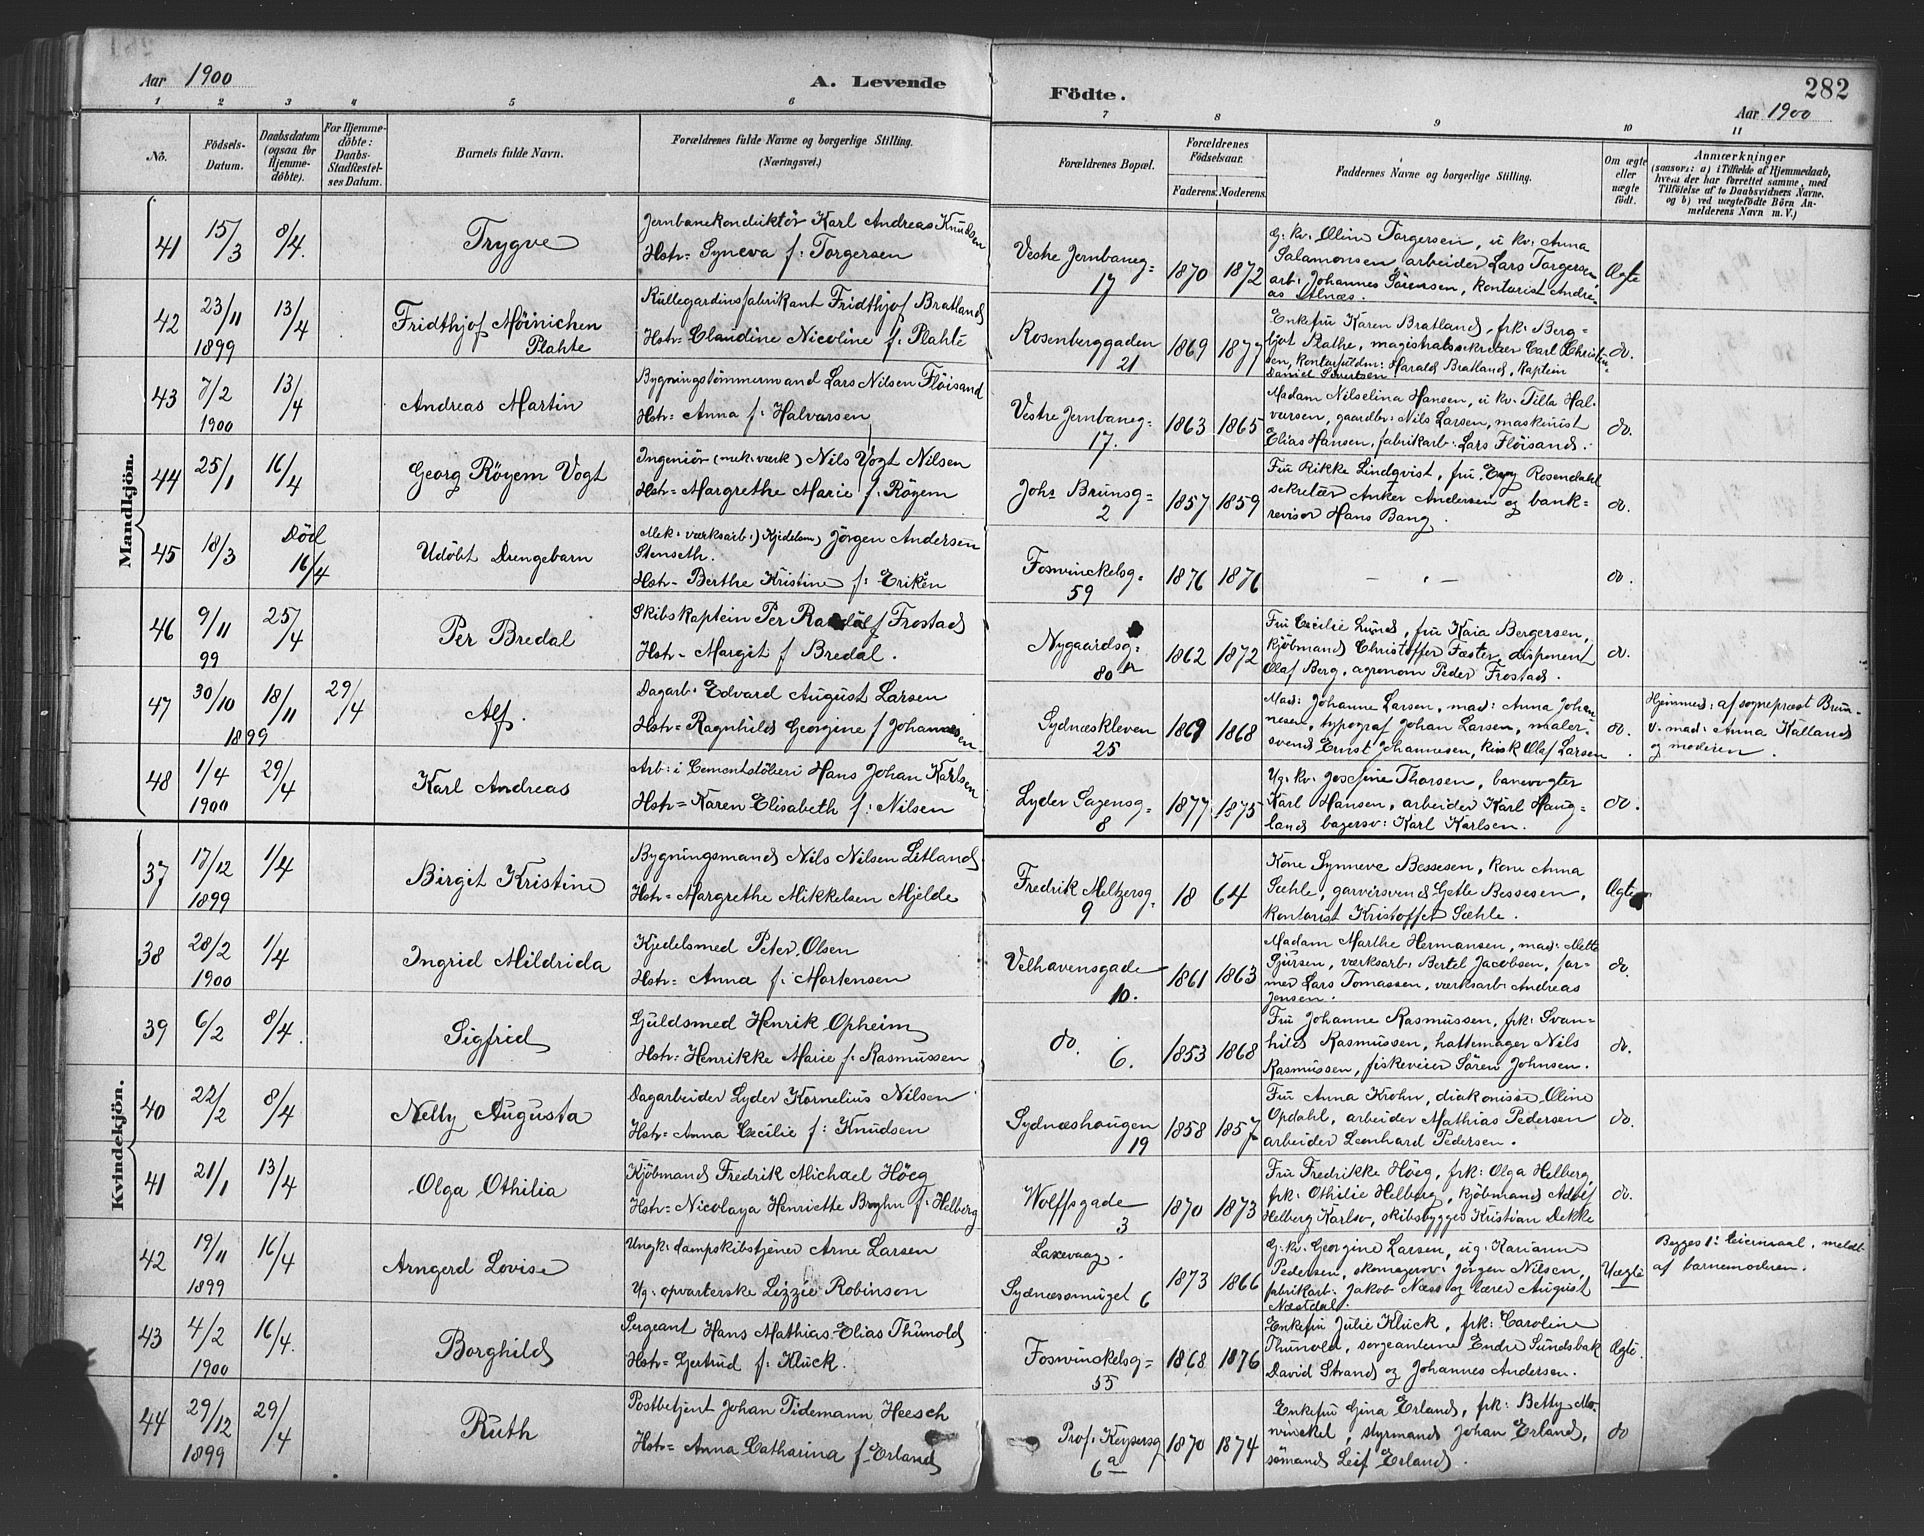 282
Aar 1900 A. Levende Födte. Aar 1900
1 2 3 4 5 6 7 8 9 10 11
No. Födsels-Datum. Daabsdatum (ogsaa for Hjemmedöbte). For Hjemmedöbte: Daabs-Stadfæstelses Datum. Barnets fulde Navn. Forældrenes fulde Navne og borgerlige Stilling. (Næringsvei.) Forældrenes Bopæl. Forældrenes Födselsaar. Faderens. Moderens. Faddernes Navne og borgerlige Stilling. Om ægte eller uægte födt. Anmærkninger (saasom: a) i Tilfælde af Hjemmedaab, hvem der har forrettet samme, med Tilföielse af to Daabsvidners Navne, og b) ved uægtefödte Börn Anmelderens Navn m. V.)
Mandkjön.
41 15/3 8/4. Trygve
Jernbanekonduktör Karl Andreas Knudsen
Hstr. Syneva f. Torgersen
Vestre Jernbaneg. 17 1870 1872
G. kv. Oline Torgersen, u kv. Anna
Salamonsen arbeider Lars Torgersen,
arb. Johannes Sörensen, kontorist Andre-
as Alnæs.
Ægte
42 23/11 1899 13/4 Fridthjof Möinichen Plahte
Rullegardinsfabrikant Fridthjof Bratland
Hstr. Claudine Nicoline f. Plahte
Rosenberggaden 21 1869 1877
Enkefru Karen Bratland, frk. Berg-
ljot Plathe, magistratssekretær Carl Christen-
sen, kontorfuldm: Harald Bratland, Kaptein
Daniel Sivertsen
do.
43 7/2 1900 13/4 Andreas Martin
Bygningstömmermand Lars Nilsen Flöisand
Hstr. Anna f. Halvorsen
Vestre Jernbaneg. 17. 1863 1865
Madam Nilselina Hansen, u kv. Tilla Hal-
vorsen, gaardbr. Nils Larsen, maskinist
Elias Hansen, fabrikarb. Lars Flöisand.
do.
44 25/1 16/4 Georg Röyem Vogt
Ingeniör (mek. værk) Nils Vogt Nilsen
Hstr. Margrethe Marie f. Röyem
Johs Brunsg. 2 1857 1859
Fru Rikke Lindqvist, fru Rosendahl
sekretær Anker Andersen og bank-
revisor Hans Bang.
do.
45 18/3 Död 16/4 Udöbt Drengebarn
Mek. værksarb. Kjedelsm. Jörgen Andersen
Stenseth.
Hstr. Berthe Kristine f. Eriksen
Foswinckelsg. 59 1876 1876
- " -
do.
46 9/11 99 25/4 Per Bredal
Skibskaptein Per Frostad
Hstr. Margit f Bredal.
Nygaardsg. 80 1862 1872
Fru Cecilie Lund, fru Kaia Bergersen,
kjöbmand Christoffer Faster, disponent
Olaf Berg, agronom Peder Frostad.
do.
47 30/10 1899 18/11 29/4 Alf.
Dagarb. Edvard August Larsen
Hstr. Ragnhild Georgine f Johannesen
Sydnæskleven 25 1869 1868
Mad. Johanne Larsen, mad. Anna Johan-
nesen, typograf Johan Larsen, maler-
svend Ernst Johannesen, kusk Olaf Larsen
do.
Hjemmed. af sogneprest Brun
v. mad. Anna Kalland
og moderen.
48 1/4 1900 29/4 Karl Andreas
Arb. i Cementstöberi Hans Johan Karlsen
Hstr. Karen Elisabeth f. Nilsen
Lyder Sagensg. 8 1877 1875
Ug. kv. Josefine Thorsen, banevogter
Karl Hansen, arbeider Karl Haug-
land bagersv. Karl Karlsen.
do.
Kvindekjön.
37 17/12 1899 1/4 Birgit Kristine
Bygningsmand Nils Nilsen Litland
Hstr. Margrethe Mikkelsen Mjelde
Fredrik Meltzersg. 9 18 64
Kone Synneve Bessesen, kone Anna
Sæhle, garversvend Getle Bessesen,
kontorist Kristoffer Sæhle.
Ægte
38 28/2 1900 1/4 Ingrid Mildrida
Kjedelsmed Peter Olsen
Hstr. Anna f. Mortensen
Velhavensgade 10. 1861 1863
Madam Marthe Hermansen, mad. Mette
Sjursen, værksarb. Bertel Jacobsen, for-
mer Lars Tomassen, værksarb. Andreas
Jensen.
do.
39 6/2 8/4. Sigfrid
Guldsmed Henrik Opheim
Hstr. Henrikke Marie f. Rasmussen
do. 6. 1853 1868
Fru Johanne Rasmussen, frk. Svan-
hild Rasmussen, hattemager Nils
Rasmussen, fiskeveier Sören Johnsen.
do.
40 22/2 8/4 Nelly Augusta
Dagarbeider Lyder Kornelius Nilsen
Hstr. Anna Cecilie f. Knudsen
Sydnæshaugen 19 1858 1857
Fru Anna Krohn, diakonisse Oline
Opdahl, arbeider Mathias Pedersen
arbeider Leonhard Pedersen.
do.
41 21/1 13/4 Olga Othilia
Kjöbmand Fredrik Michael Höeg
Hstr. Nicolaya Henriette f. Helberg
Wolffsgade 3 1870 1873
Fru Fredrikke Höeg, frk. Olga Helberg,
frk. Othilie Helberg, kjöbmand Adolf
Helberg Karlsv, skibsbygger Kristian Dekke
do.
42 19/11 1899 16/4 Arngerd Lovise
Ungk. dampskibstjener Arne Larsen
Ug. opvarterske Lizzie Robinson
Laxevaag.
Sydnæssmuget 6 1873 1866
G. kv. Georgine Larsen, ug. Karianne
Pedersen, skomagersv. Jörgen Nilsen,
fabrikarb. Jakob Næss og lærer August
Næstdal.
Uægte
Begges 1ste leiermaal, meldt
af barnemoderen.
43 4/2 1900 16/4. Borghild
Sergeant Hans Mathias Elias Thunold
Hstr. Gertrud f. Kluck.
Foswinckelsg. 55 1868 1876
Enkefru Julie Kluck, frk. Caroline
Thunold, sergeanterne Endre Sundsbak
David Strand og Johannes Andersen.
Ægte.
44 29/12 1899 29/4 Ruth
Postbetjent Johan Tidemann Heesch
Hstr. Anna Catharina f. Erland
Prof. Keysersg. 6a 1870 1874
Enkefru Gina Erland, frk. Betty Mo-
winckel, styrmand Johan Erland,
sömand Leif Erland.
do